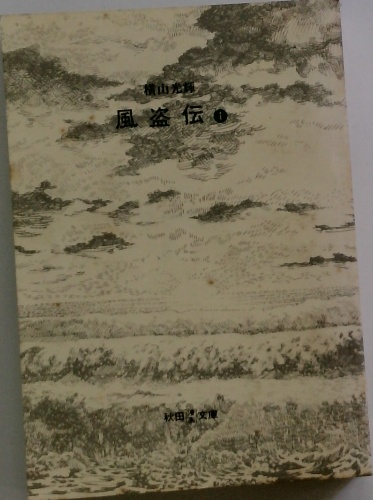 横山光輝
風盗伝 1
秋田漫画文庫